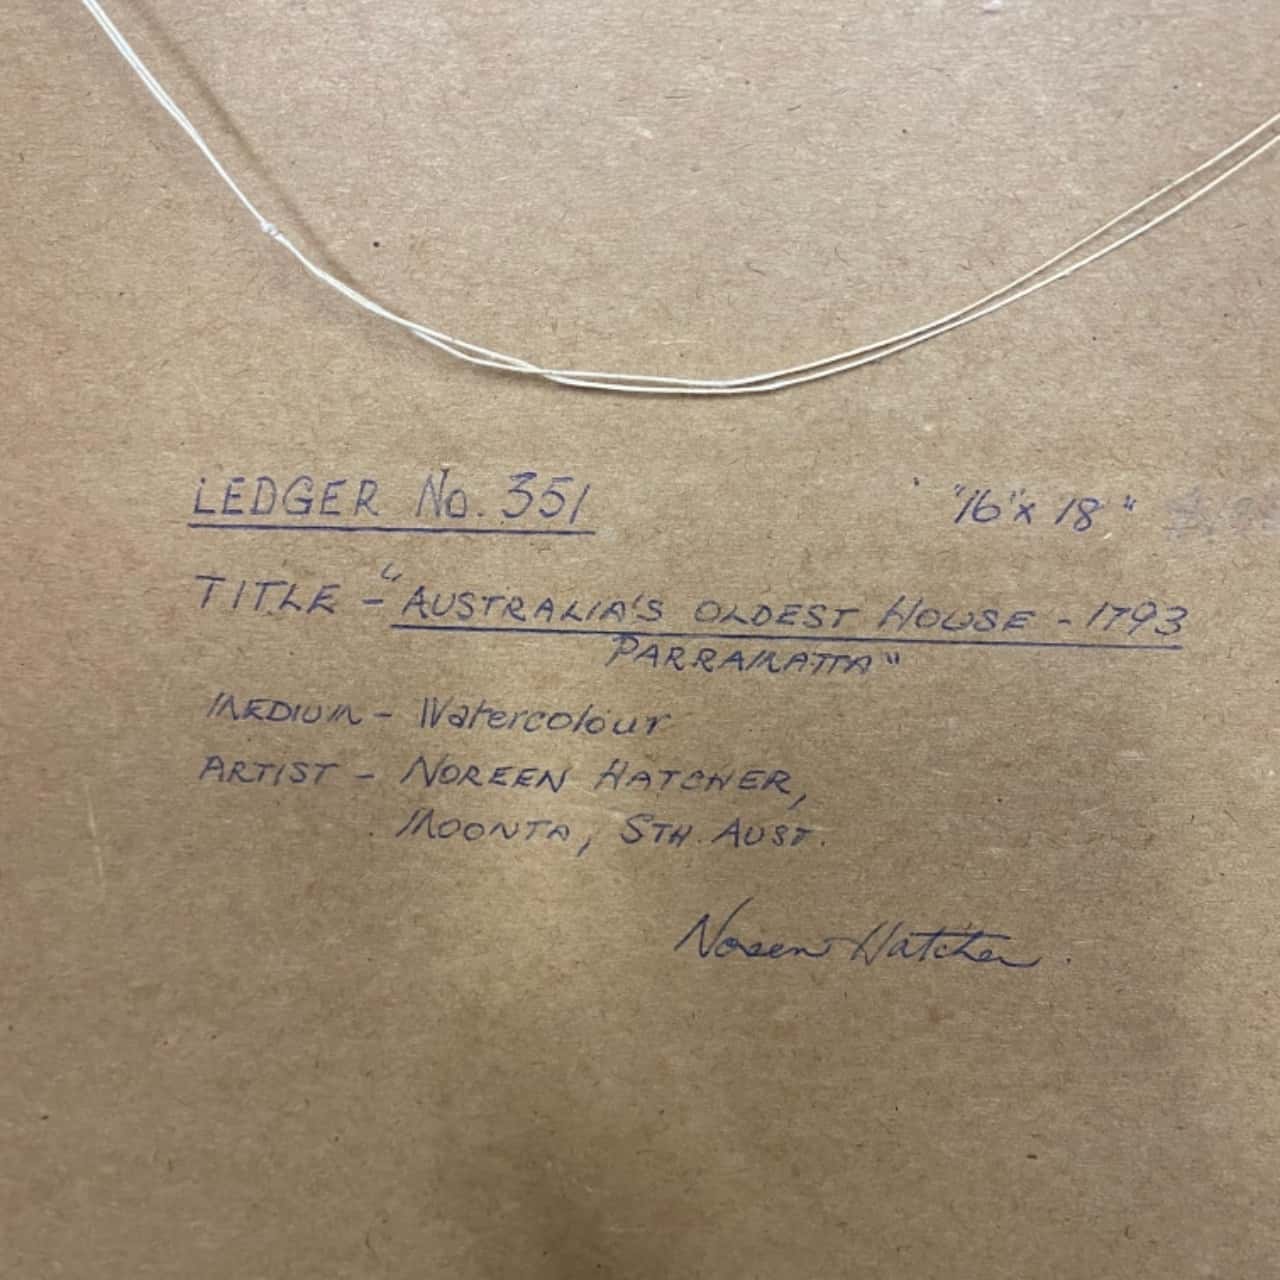 LEDGER No. 351 "16"x 18"
TITLE - "AUSTRALIA'S OLDEST HOUSE - 1793
PARRAMATTA"
MEDIUM - Watercolour
ARTIST - NOREEN HATCHER,
MOONTA, STH. AUST.
Noreen Hatcher.